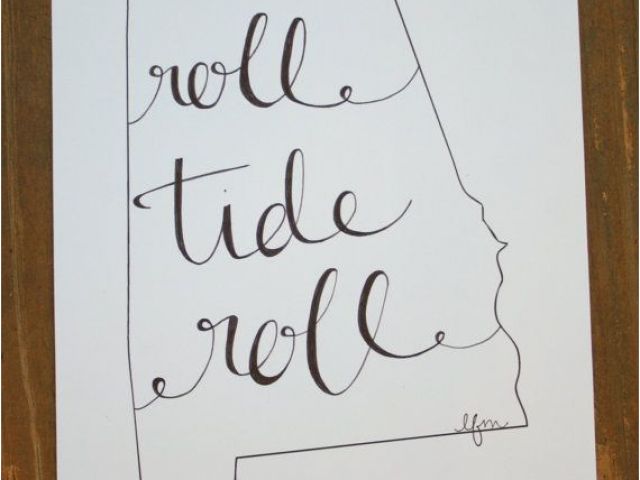 roll
tide
roll
lfm